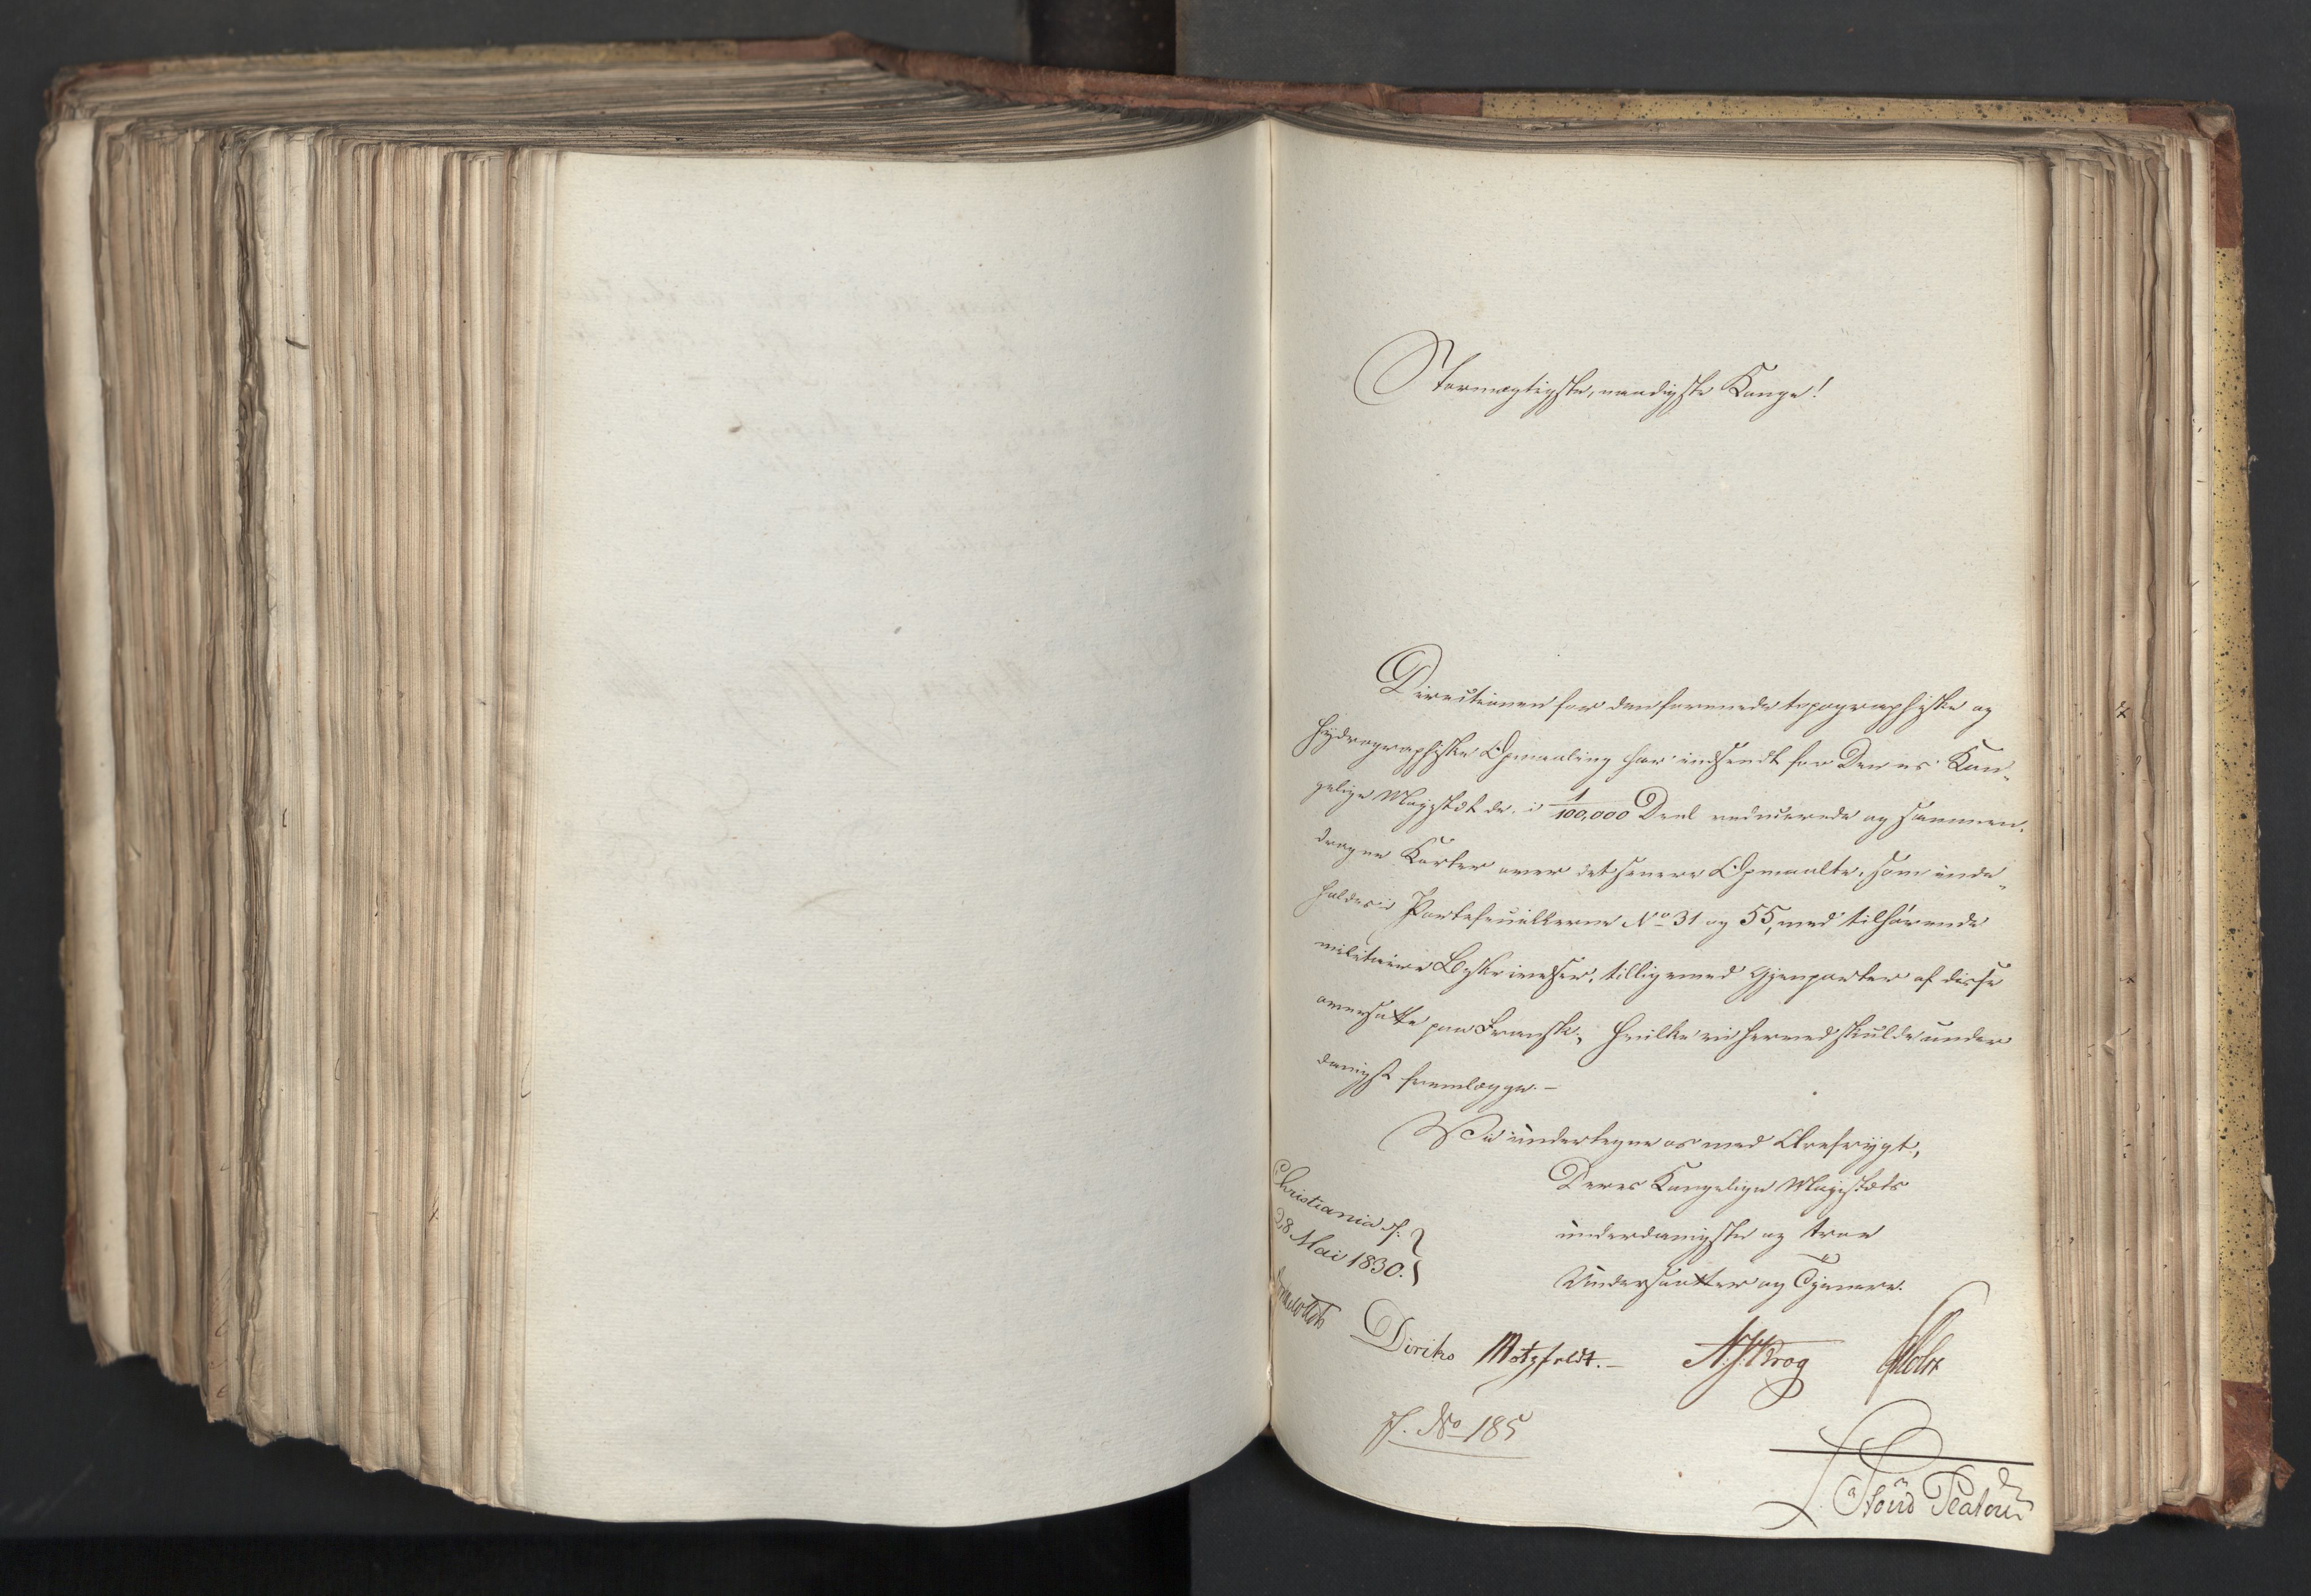 Stormægtigste, naadigste Konge!
Directionen for den forenede topographiske og
hydrographiske Opmaaling har indsendt for Deres Kon-
gelige Majestæt de i 1/100,000 Deel reducerede og sammen-
dragne Karter over det senere Opmaalte, som inde-
holdes i Portefeuillerne No 31 og 55, med tilhørende
militaire Beskrivelser, tilligemed Gjenparter af disse
oversatte paa Fransk; hvilke vi herved skulde under
danigst fremlægge.-
Vi undertegne os med Ærefrygt,
Deres Kongelige Majestæts
underdanigste og troe
Undersaatter og Tjenere.
Christiania d.
28 Mai 1830.
Diriks Motzfeldt.- N. J. Krog Holst
No 185